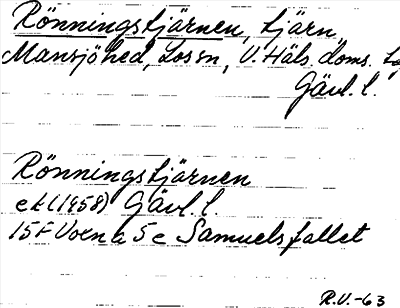 Rönningstjärnen, tjärn,
Mansjöhed, Los sn, V. Häls. doms. 
Gävl. l.
Rönningstjärnen
ek (1958) Gävl. l.
15F Voxna 5e Samuelsfallet
R.V.-63